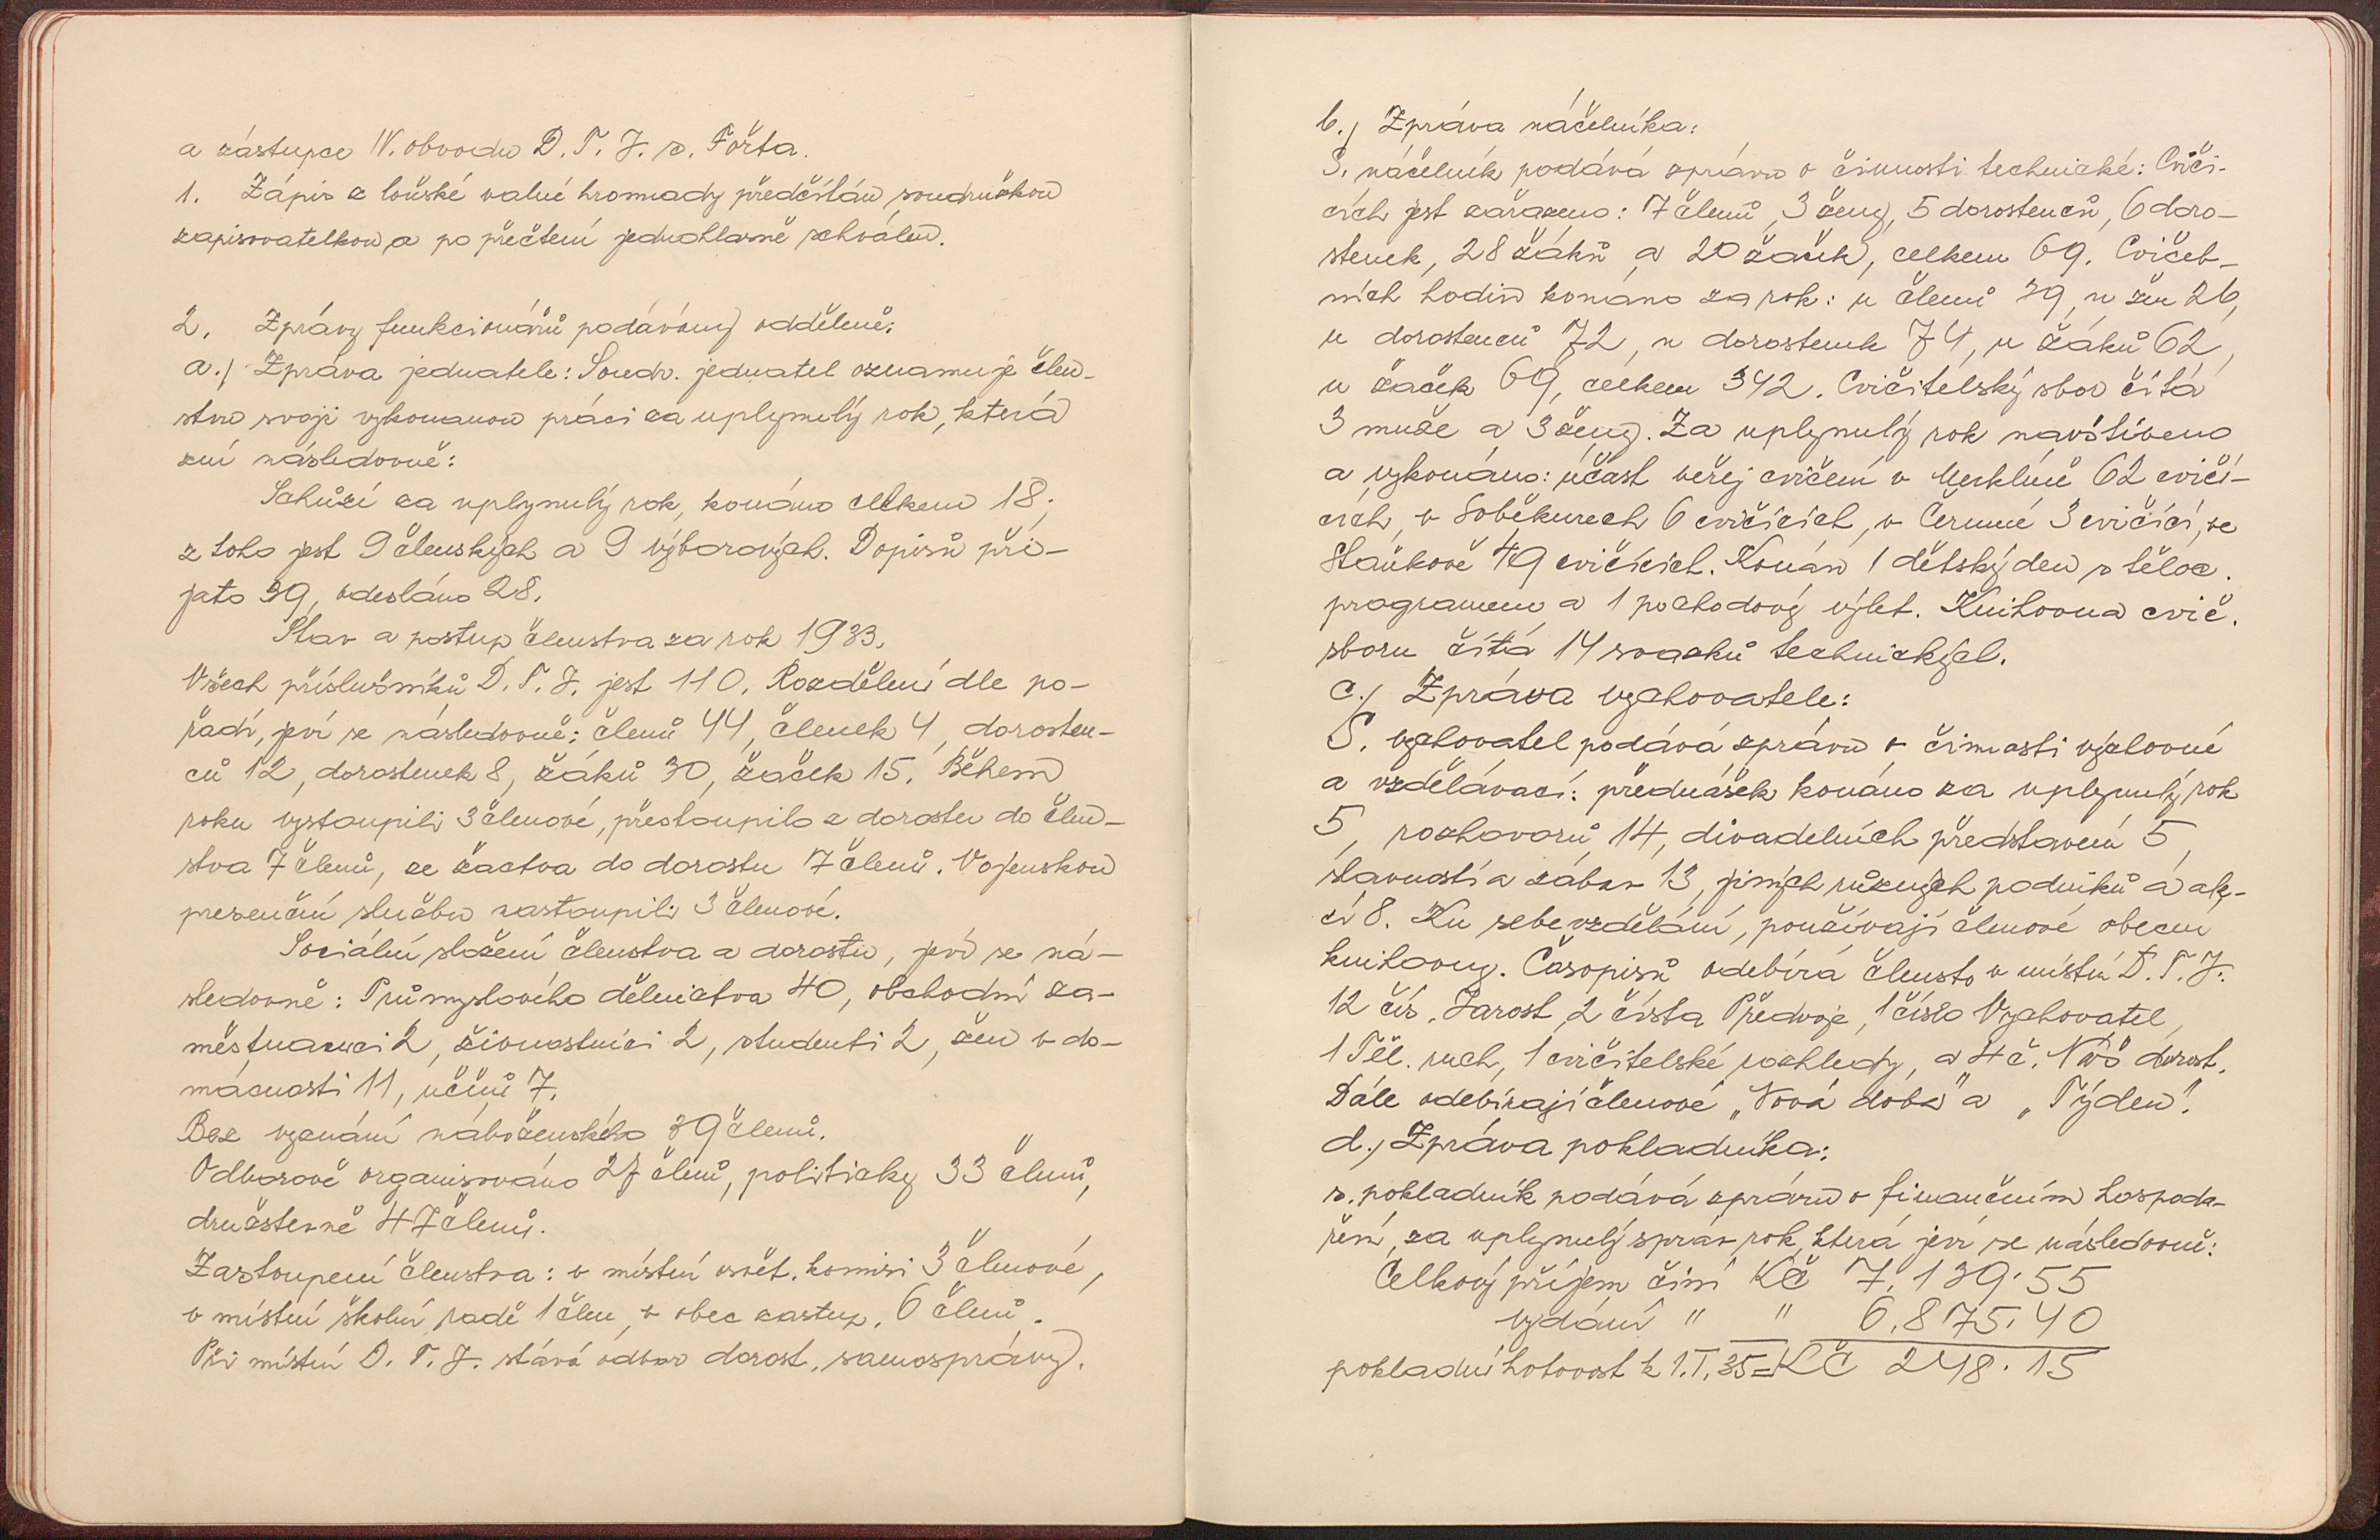 a zástupce IV. obvodu D. T. J. s. Fořta.
1. Zápis z loňské valné hromady předčítán soudružkou
zapisovatelkou a po přečtení jednohlasně schválen.
2. Zprávy funkcionářů podávány odděleně:
a./ Zpráva jednatele: Soudr. jednatel oznamuje člen-
stvu svoji vykonanou práci za uplynulý rok, která
zní následovně:
Schůzí za uplynulý rok, konáno celkem 18;
z toho jest 9 členských a 9 výborových. Dopisů při-
jato 39, odesláno 28.
Stav a postup členstva za rok 1933.
Všech příslušníků D. T. J. jest 110. Rozdělení dle po-
řadí, jeví se následovně: členů 44, členek 4, dorosten-
ců 12, dorostenek 8, žáků 30, žaček 15. Během
roku vystoupili 3 členové, přestoupilo z dorostu do člen-
stva 7 členů, ze žactva do dorostu 7 členů. Vojenskou
presenční službu nastoupili 3 členové.
Sociální složení členstva a dorostu, jeví se ná-
sledovně: Průmyslového dělnictva 40, obchodní za-
městnanci 2, živnostníci 2, studenti 2, žen v do-
mácnosti 11, učňů 7.
Bez vyznání náboženského 39 členů.
Odborově organisováno 27 členů, politicky 33 členů,
družstevně 47 členů.
Zastoupení členstva: v místní osvět. komisi 3 členové,
v místní školní radě 1 člen, v obec zastup. 6 členů.
Při místní D. T. J. stává odbor dorost. samosprávy.
b./ Zpráva náčelníka:
S. náčelník podává zprávu o činnosti technické: Cviči-
cích jest zařazeno: 7 členů, 3 ženy, 5 dorostenců, 6 doro-
stenek, 28 žáků a 20 žaček, celkem 69. Cvičeb-
ních hodin konáno za rok: u členů 39, u žen 26,
u dorostenců 72, u dorostenek 74, u žáků 62,
u žaček 69, celkem 342. Cvičitelský sbor čítá
3 muže a 3 ženy. Za uplynulý rok navštíveno
a vykonáno: účast veřej cvičení v Merklíně 62 cvičí-
cích, v Soběkurech 6 cvičících, v Černné 3 cvičící, ve
Staňkově 49 cvičících. Konán 1 dětský den s těloc.
programem a 1 pochodový výlet. Knihovna cvič.
sboru čítá 14 svazků technických.
c./ Zpráva vychovatele:
S. vychovatel podává zprávu o činnosti výchovné
a vzdělávací: přednášek konáno za uplynulý rok
5, rozhovorů 14, divadelních představení 5,
slavností a zábav 13, jiných různých podniků a ak-
cí 8. Ku sebevzdělání, používají členové obecní
knihovny. Časopisů odebírá členstvo v místní D. T. J.
12 čís. Jarost, 2 čísla Předvoje, 1 číslo Vychovatel,
1 Těl. ruch, 1 cvičitelské rozhledy, a 4 č. Náš dorost.
Dále odebírají členové „Nová doba" a „Týden".
d./ Zpráva pokladníka:
s. pokladník podává zprávu o finančním hospoda-
ření, za uplynulý správ rok, která jeví se následovně:
Celkový příjem činí Kč 7,139.55
vydání " " 6,875.40
pokladní hotovost k 1.I.35 = Kč 248.15